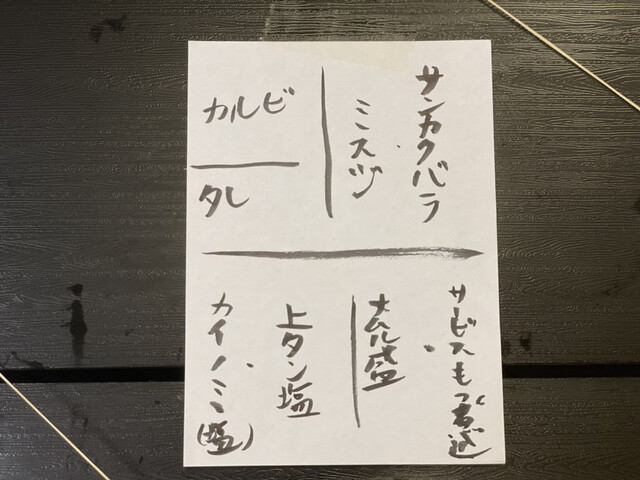 サンカクバラ
ミスヅ
カルビ
タレ
サービスもつ煮込
ナムル盛
上タン塩
カイノミ(塩)